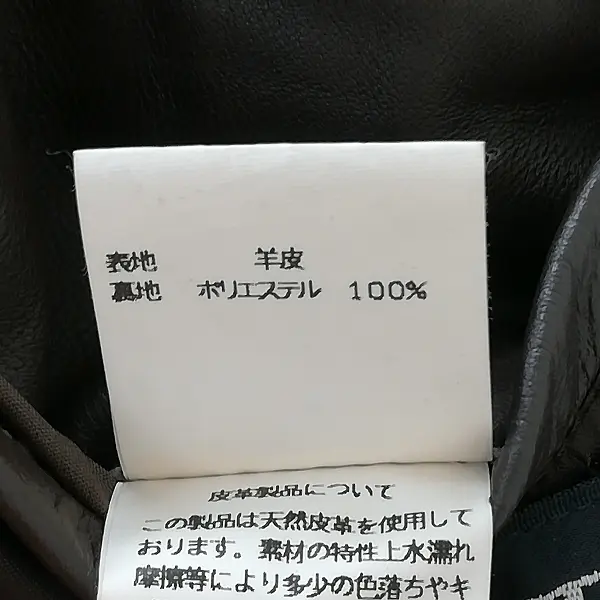 表地 羊皮
裏地 ポリエステル 100%
皮革製品について
この製品は天然皮革を使用して
おります。素材の特性上水濡れ
摩擦等により多少の色落ちやキ